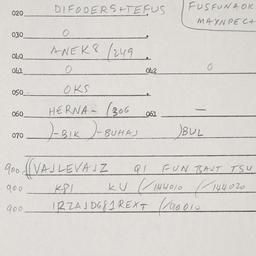 020 DIFODERS+TEFUS
FUSFUNAOK
MAXNPECA
030 0
040 ANEK8 (249
041 0 042 0
050 OKS
060 HERNA- (306 061 —
070 )-BIK )-BUHAJ )BUL
900 ((VAJLEVAJZ QI FUN BAJT TSU
900 KPI KU (/144010 (/144020
900 IRZAJDG81REXT (/90010